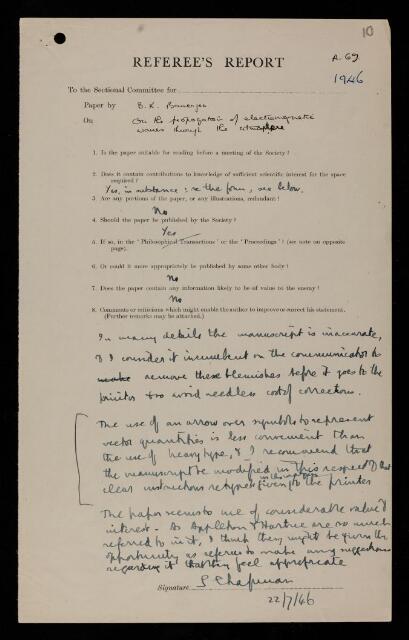 10
REFEREE'S REPORT
A. 69
1946
To the Sectional Committee for
Paper by B. K. Banerjea
On On the propagation of electromagnetic
waves through the atmosphere
1. Is the paper suitable for reading before a meeting of the Society?
2. Does it contain contributions to knowledge of sufficient scientific interest for the space
required?
Yes, in substance: re the form, see below.
3. Are any portions of the paper, or any illustrations, redundant?
No
4. Should the paper be published by the Society?
Yes
5. If so, in the 'Philosophical Transactions' or the 'Proceedings'? (see note on opposite
page).
6. Or could it more appropriately be published by some other body?
No
7. Does the paper contain any information likely to be of value to the enemy?
No
8. Comments or criticisms which might enable the author to improve or correct his statement.
(Further remarks may be attached.)
In many details the manuscript is inaccurate,
& I consider it incumbent on the communicator to
make remove these blemishes before it goes to the
printer & so avoid needless cost of corrections.
The use of an arrow over symbols to represent
vector quantities is less convenient than
the use of heavy type, & I recommend that
the manuscript be modified in this respect & that
clear instructions re types given to the printer
The paper seems to me of considerable value &
interest. As Appleton & Hartree are so much
referred to in it, I think they might be given the
opportunity as referees to make any suggestions
regarding it that they feel appropriate
Signature S Chapman
22/7/46